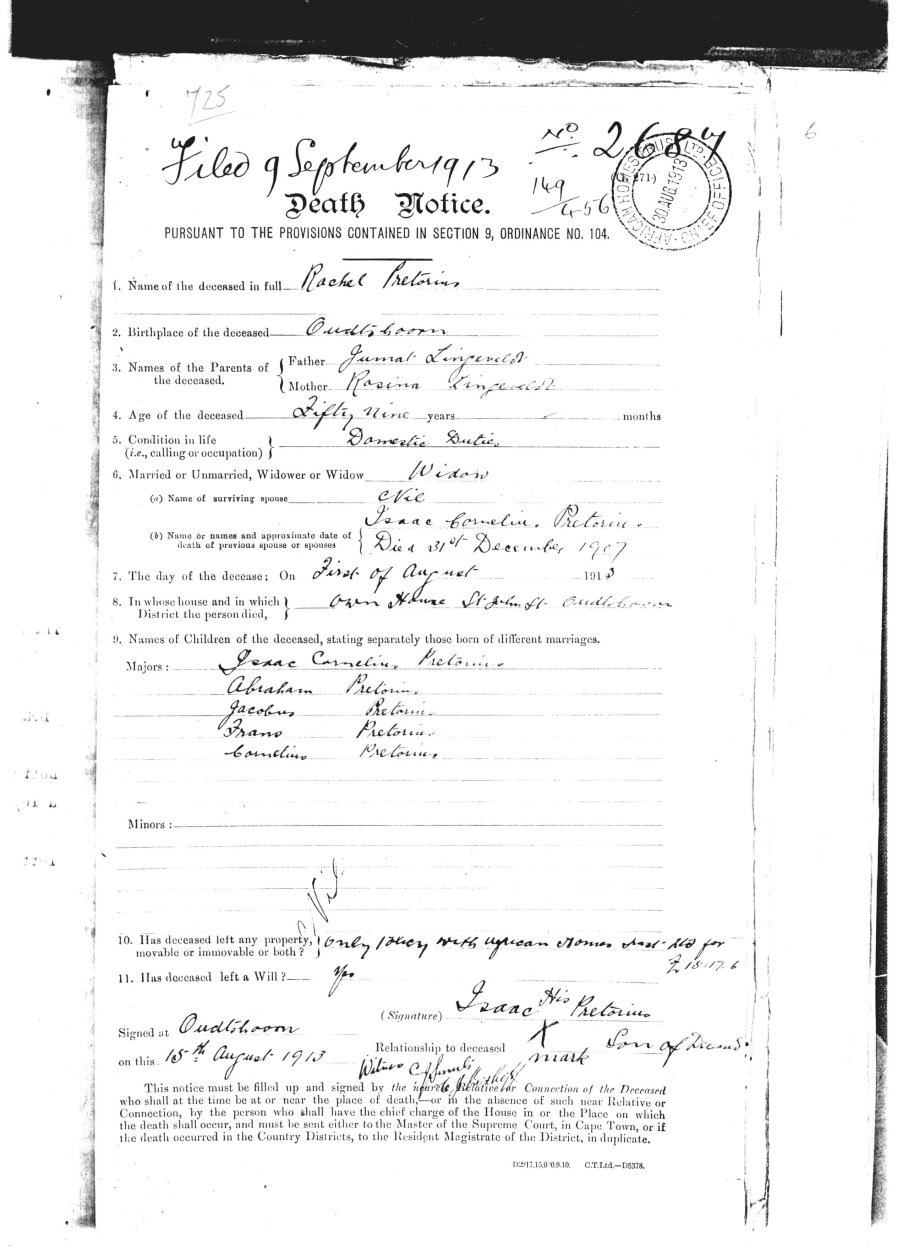 725
6
No 2687
Filed 9 September 1913
149/456
(G. 271.)
AFRICAN HOMES TRUST LTD. CHIEF OFFICE
30 AUG 1913
Death Notice.
PURSUANT TO THE PROVISIONS CONTAINED IN SECTION 9, ORDINANCE NO. 104.
1. Name of the deceased in full Rachel Pretorius
2. Birthplace of the deceased Oudtshoorn
3. Names of the Parents of the deceased.
Father Jumat Lingeveldt
Mother Rosina Lingeveldt
4. Age of the deceased Fifty Nine years months
5. Condition in life (i.e., calling or occupation) Domestic Duties
6. Married or Unmarried, Widower or Widow Widow
(a) Name of surviving spouse Nil
(b) Name or names and approximate date of death of previous spouse or spouses
Isaac Cornelius Pretorius
Died 31st December 1907
7. The day of the decease; On First of August 1913
8. In whose house and in which District the person died, Own House St John St. Oudtshoorn
9. Names of Children of the deceased, stating separately those born of different marriages.
Majors: Isaac Cornelius Pretorius
Abraham Pretorius
Jacobus Pretorius
Frans Pretorius
Cornelius Pretorius
Minors:
Nil
10. Has deceased left any property, movable or immovable or both? Only Policy with African Homes Trust Ltd for
£ 15-17.6
11. Has deceased left a Will? Yes
(Signature) Isaac His Pretorius
X
mark
Signed at Oudtshoorn
on this 15th August 1913
Relationship to deceased Son of Deceased
Witness
This notice must be filled up and signed by the nearest Relative or Connection of the Deceased
who shall at the time be at or near the place of death,—or in the absence of such near Relative or
Connection, by the person who shall have the chief charge of the House in or the Place on which
the death shall occur, and must be sent either to the Master of the Supreme Court, in Cape Town, or if
the death occurred in the Country Districts, to the Resident Magistrate of the District, in duplicate.
C.T.Ltd.—D5378.